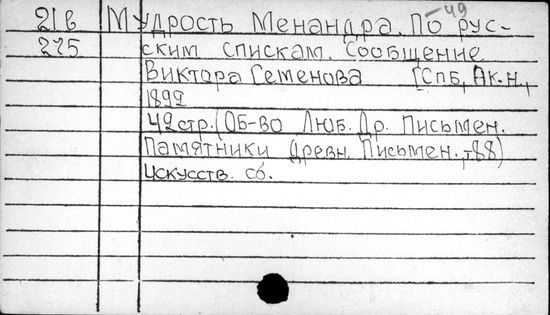 -49
21 в Мудрость Менандра. По рус-
275 ским спискам. Сообщение
Виктора Семенова [Спб, Ак.н.,
1892
42 стр. (Об-во Люб. Др. Письмен.
Памятники Древн. Письмен., т88)
Искусств. сб.